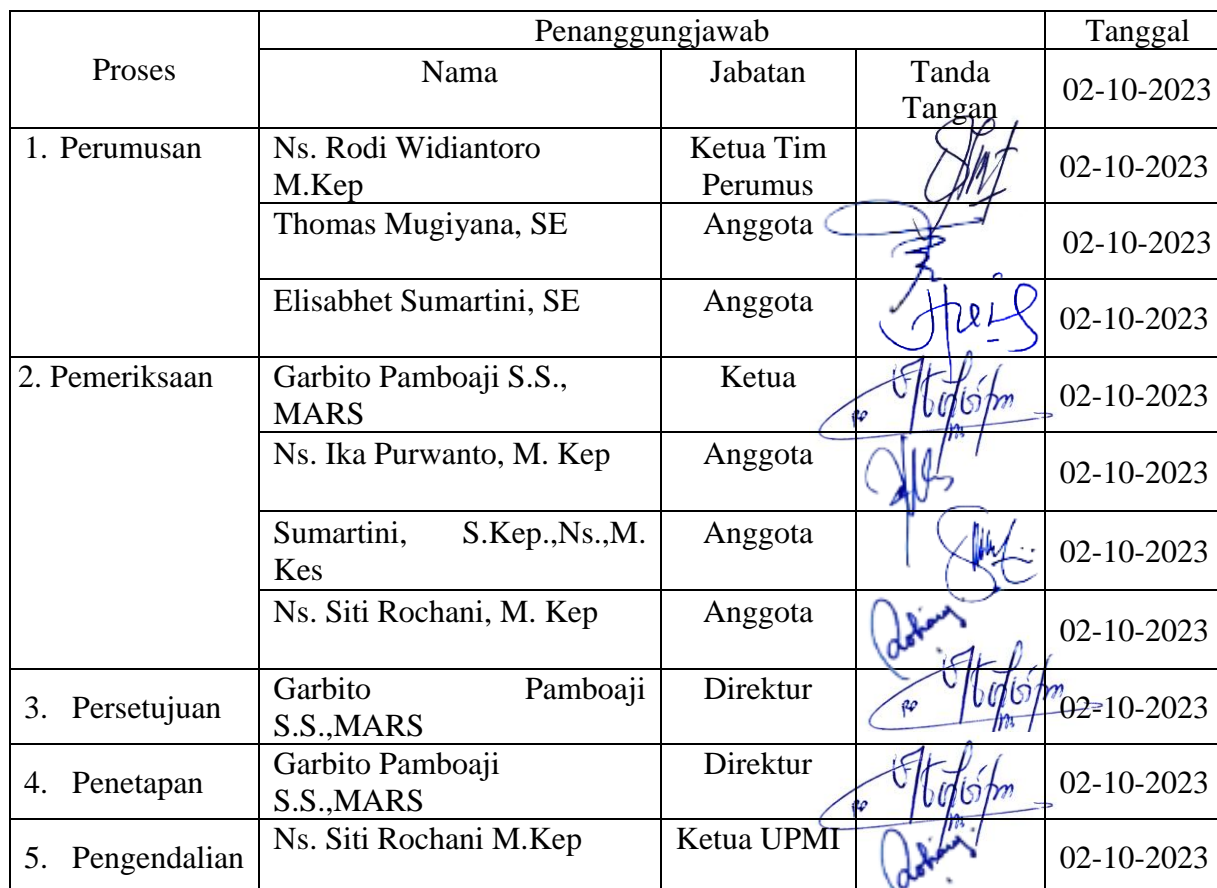 Proses
Penanggungjawab
Tanggal
Nama
Jabatan
Tanda
Tangan
02-10-2023
1. Perumusan
Ns. Rodi Widiantoro
M.Kep
Ketua Tim
Perumus
02-10-2023
Thomas Mugiyana, SE
Anggota
02-10-2023
Elisabhet Sumartini, SE
Anggota
02-10-2023
2. Pemeriksaan
Garbito Pamboaji S.S.,
MARS
Ketua
02-10-2023
Ns. Ika Purwanto, M. Kep
Anggota
02-10-2023
Sumartini, S.Kep.,Ns.,M.
Kes
Anggota
02-10-2023
Ns. Siti Rochani, M. Kep
Anggota
02-10-2023
3. Persetujuan
Garbito Pamboaji
S.S.,MARS
Direktur
02-10-2023
4. Penetapan
Garbito Pamboaji
S.S.,MARS
Direktur
02-10-2023
5. Pengendalian
Ns. Siti Rochani M.Kep
Ketua UPMI
02-10-2023